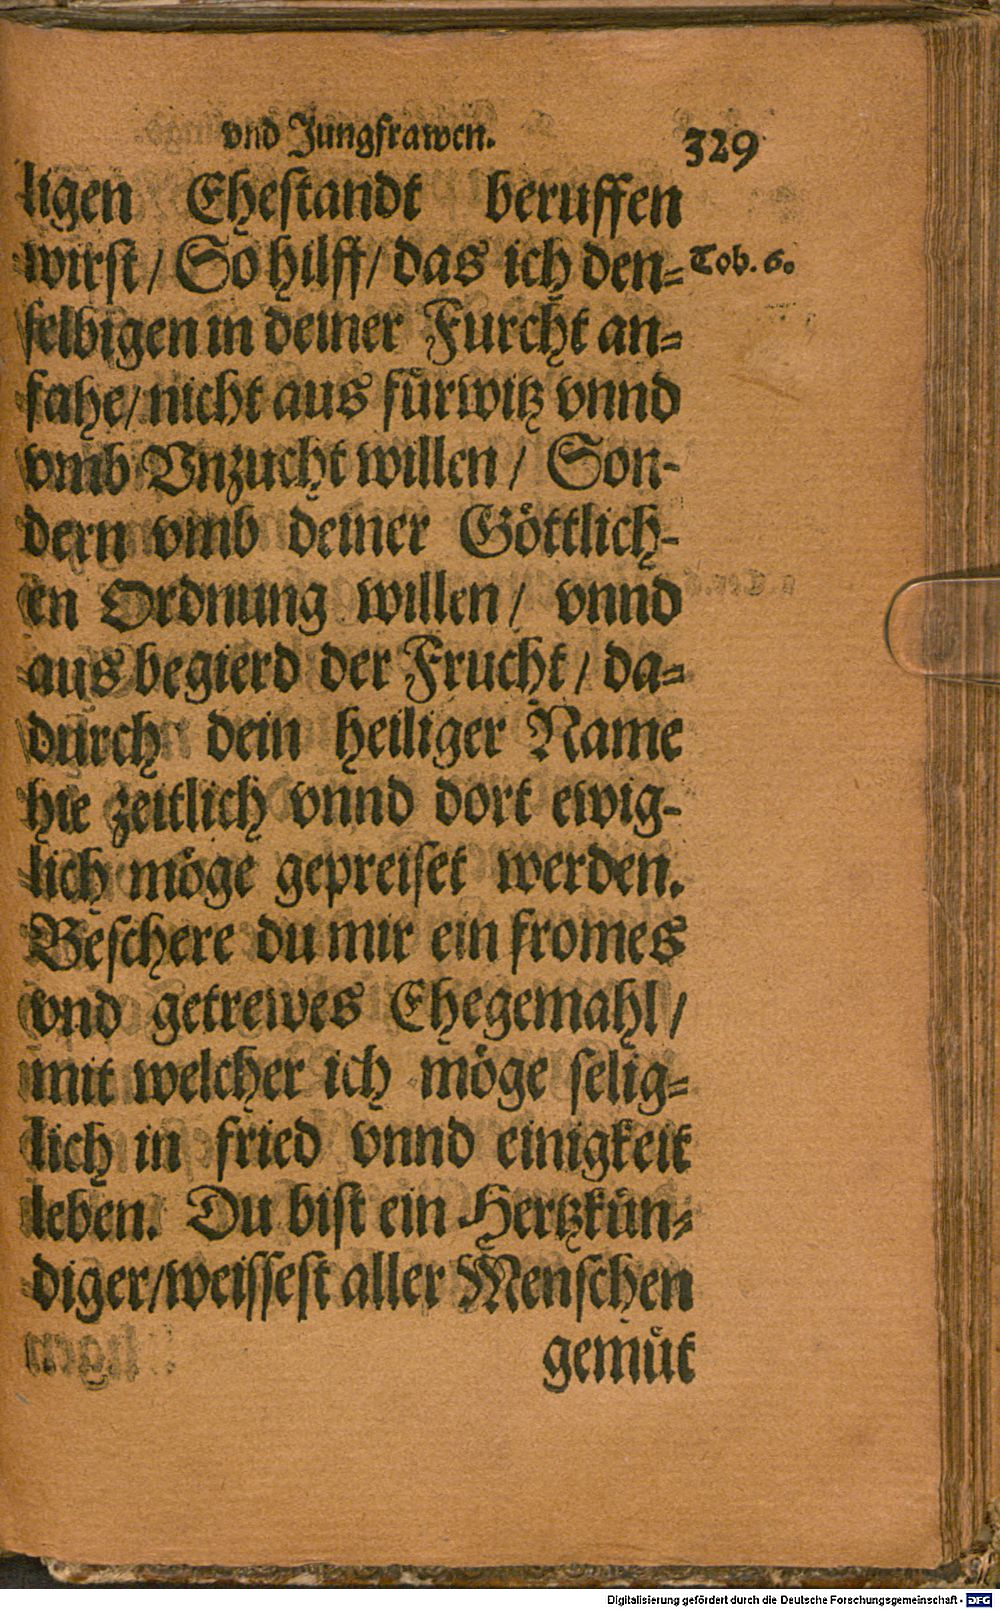 vnd Jungfrawen. 329
ligen Eheſtandt beruffen
wirſt / So hilff / das ich den⸗ Tob. 6.
ſelbigen in deiner Furcht an⸗
fahe / nicht aus fuͤrwitz vnnd
vmb Vnzucht willen / Son⸗
dern vmb deiner Goͤttlich⸗
en Ordnung willen / vnnd
aus begierd der Frucht / da⸗
durch dein heiliger Name
hie zeitlich vnnd dort ewig⸗
lich moͤge gepreiſet werden.
Beſchere du mir ein fromes
vnd getrewes Ehegemahl /
mit welcher ich moͤge ſelig⸗
lich in fried vnnd einigkeit
leben. Du biſt ein Hertzkuͤn⸗
diger / weiſſeſt aller Menſchen
gemuͤt
Digitalisierung gefördert durch die Deutsche Forschungsgemeinschaft - DFG